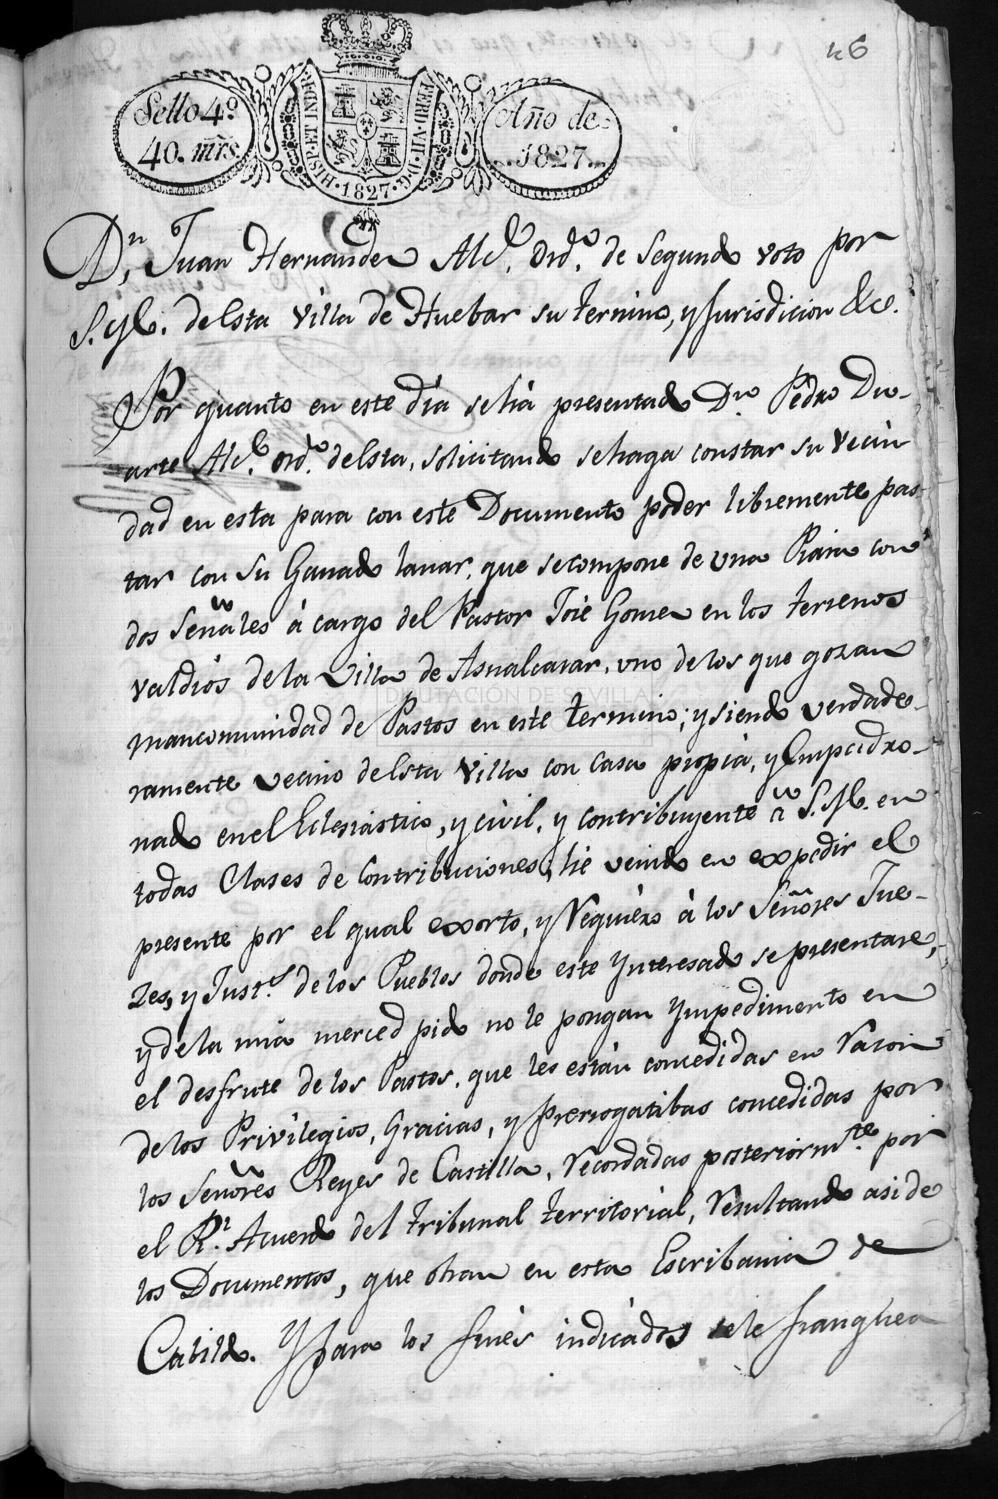 46
Sello 4º
40. mrs.
HISP. ET IND. R.
FERD. VII. D. G.
1827
Año de
1827
Dn. Juan Hernandez Alce. Ordo. de Segundo voto por
S. M. de esta Villa de Huebar su termino, y Jurisdicion &c.
Por quanto en este dia se há presentado Dn. Pedro Du-
arte Alce. ordo. de esta, solicitando se haga constar su vecin
dad en esta para con este Documento poder libremente pas-
tar con su Ganado lanar, que se compone de una Piara con
dos Señales á cargo del Pastor José Gomez en los terrenos
valdios de la Villa de Asnalcazar, uno de los que gozan
mancomunidad de Pastos en este termino; y siendo verdade-
ramente vecino de esta Villa con casa propia, y Empadro-
nado en el Eclesiastico, y civil, y contribuyente á S. M. en
todas Clases de Contribuciones, hé venido en expedir el
presente por el qual exorto, y Requiero á los Señores Jue-
zes, y Justs. de los Pueblos donde este Ynteresado se presentare,
y de la mia merced pido no le pongan Ympedimento en
el desfrute de los Pastos, que les están concedidas en razon
de los Privilegios, Gracias, y Prerrogatibas concedidas por
los Señores Reyes de Castilla, recordadas posteriormte. por
el Rl. Acuerdo del tribunal territorial, Resultando asi de
los Documentos, que obran en esta Escribania de
Cabildo. Y para los fines indicados se le franquea
DIPUTACIÓN DE SEVILLA